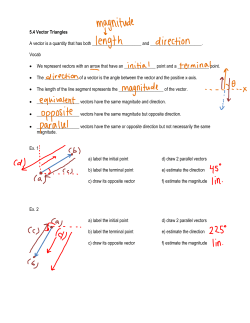 magnitude
5.4 Vector Triangles
A vector is a quantity that has both length and direction.
Vocab
• We represent vectors with an arrow that have an initial point and a terminal point.
• The direction of a vector is the angle between the vector and the positive x axis.
• The length of the line segment represents the magnitude of the vector.
• equivalent vectors have the same magnitude and direction.
• opposite vectors have the same magnitude but opposite direction.
• parallel vectors have the same or opposite direction but not necessarily the same magnitude.
θ
x
Ex. 1
a) label the initial point d) draw 2 parallel vectors
b) label the terminal point e) estimate the direction 45°
c) draw its opposite vector f) estimate the magnitude 1in.
(d) (b)
(a) (c)
Ex. 2
a) label the initial point d) draw 2 parallel vectors
b) label the terminal point e) estimate the direction 225°
c) draw its opposite vector f) estimate the magnitude 1in.
(c) (a)
(d)
(b)